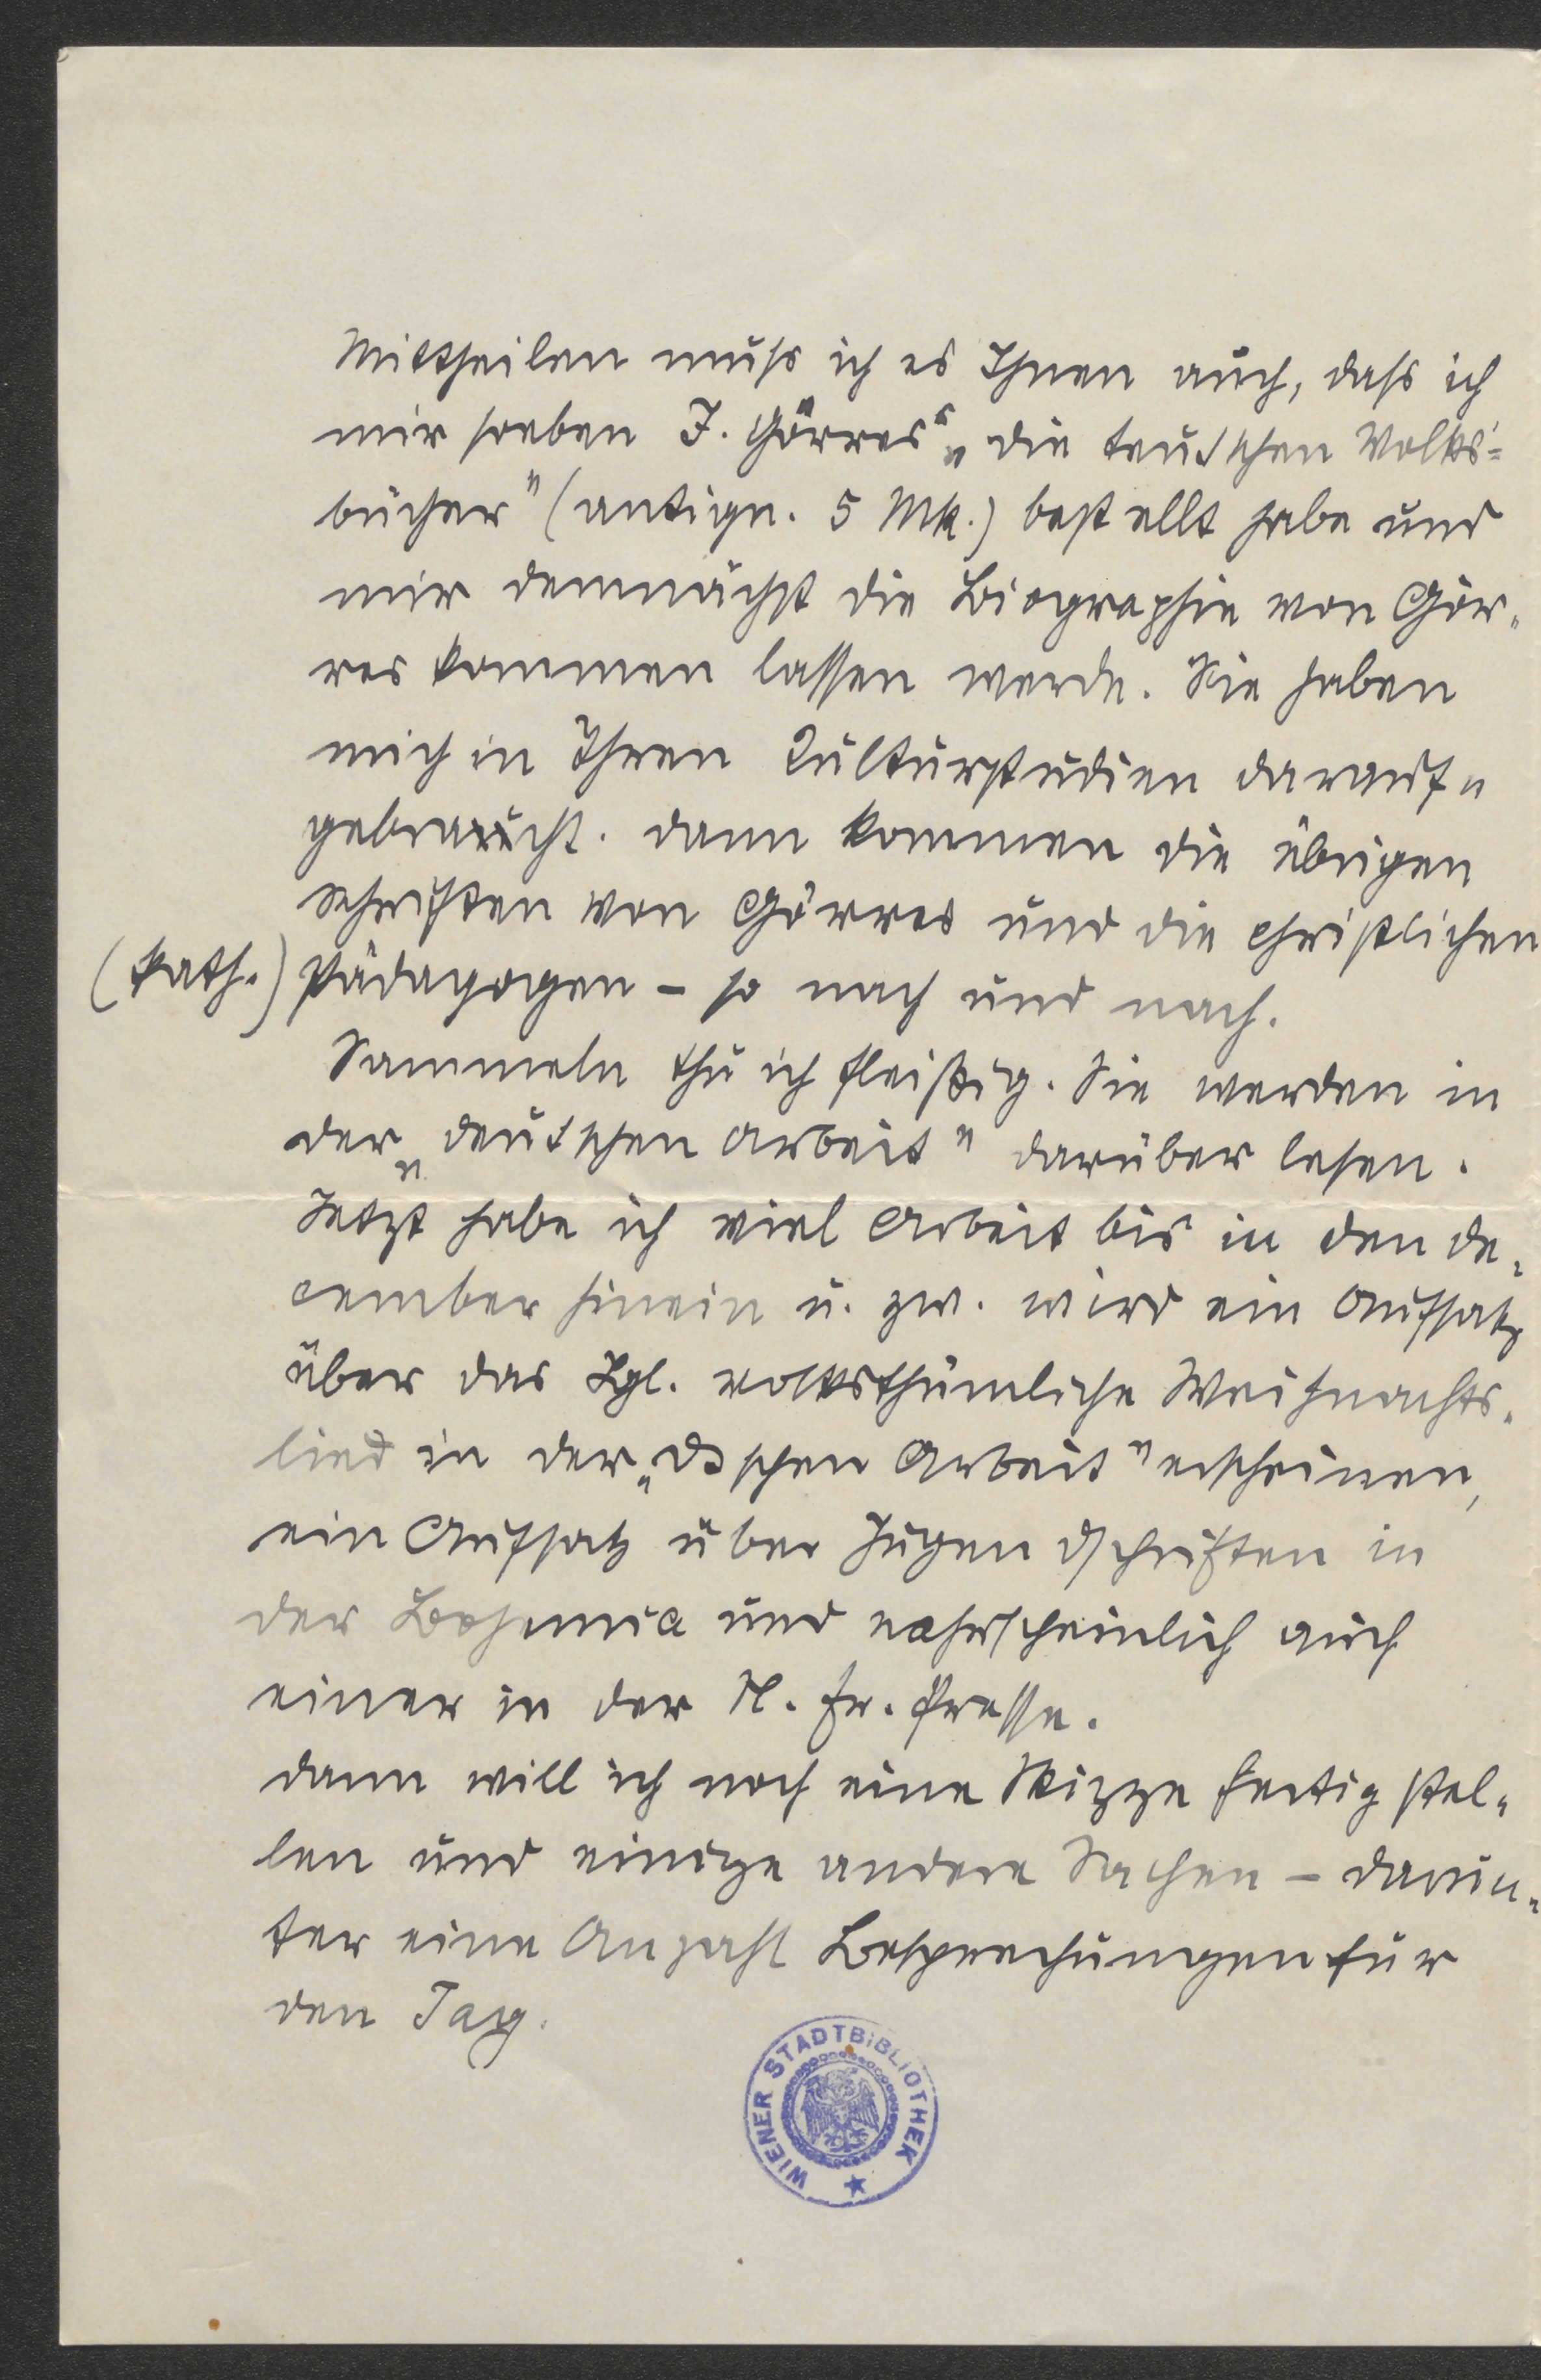 Mittheilen muß ich es Ihnen auch, daß ich
mir soeben J. Görres' „die teutschen Volks=
bücher" (antiqu. 5 Mk.) bestellt habe und
mir demnächst die Biographie von Gör-
res kommen lassen werde. Sie haben
mich in Ihren Kulturstudien darauf
gebracht. dann kommen die übrigen
Schriften von Görres und die christlichen
(kath.) Pädagogen - so nach und nach.
Sammeln thu ich fleißig. Sie werden in
der „deutschen Arbeit" darüber lesen.
Jetzt habe ich viel Arbeit bis in den de-
cember hinein u. zw. wird ein Aufsatz
über das volksthümliche Weihnachts-
lied in der „dtschen Arbeit" erscheinen,
ein Aufsatz über Jugendschriften in
der Bohemia und wahrscheinlich auch
einer in der N. Fr. Presse.
dann will ich noch eine Skizze fertig stel-
len und einige andere Sachen - darun-
ter eine Anzahl Besprechungen für
den Tag.
WIENER STADTBIBLIOTHEK